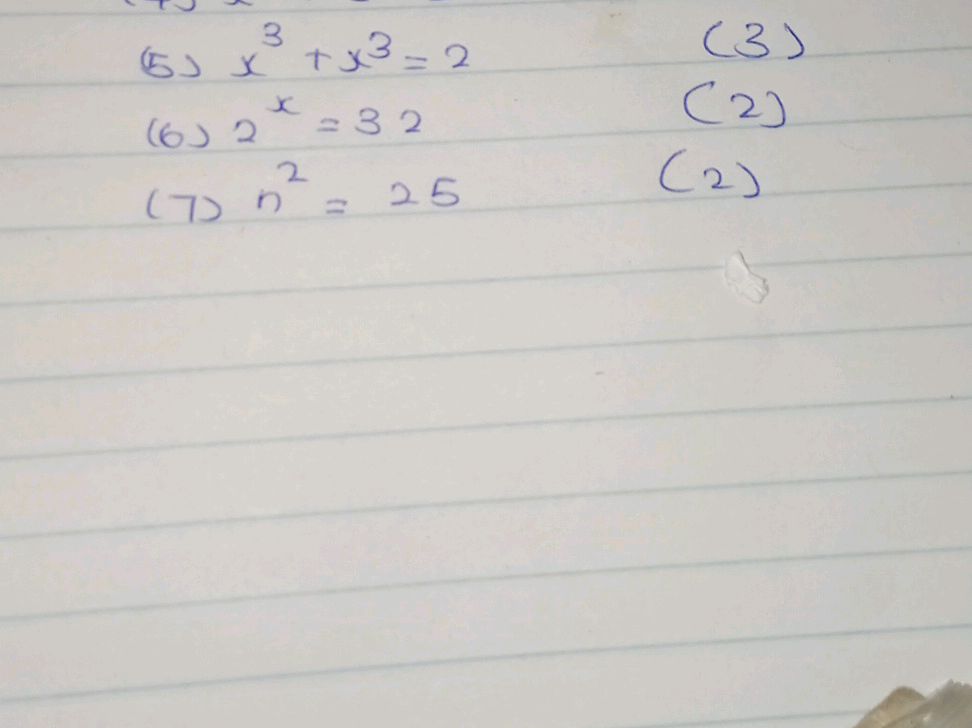 (5) x³ + x³ = 2 (3)
(6) 2ˣ = 32 (2)
(7) n² = 25 (2)